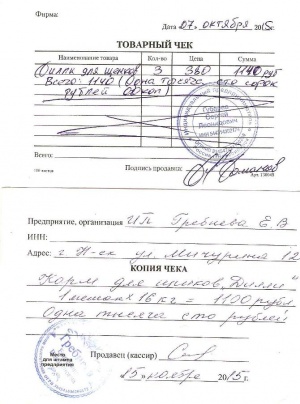 Фирма:
Дата 07. октября 2015г.
ТОВАРНЫЙ ЧЕК
Наименование товара Кол-во Цена Сумма
для щенков 3 380 1140 руб
Всего: 1140 (Одна тысяча сто сорок
рублей 00 коп)
Всего:
Подпись продавца:
Предприятие, организация ИП Гребнева Е.В
ИНН:
Адрес: г. Н-ск ул. Мичурина 12
КОПИЯ ЧЕКА
Корм для щенков, „Дилли"
1 мешок х 16 кг = 1100 рубл
Одна тысяча сто рублей
Место
для штампа
предприятия
Продавец (кассир)
15 ноября 2015г.